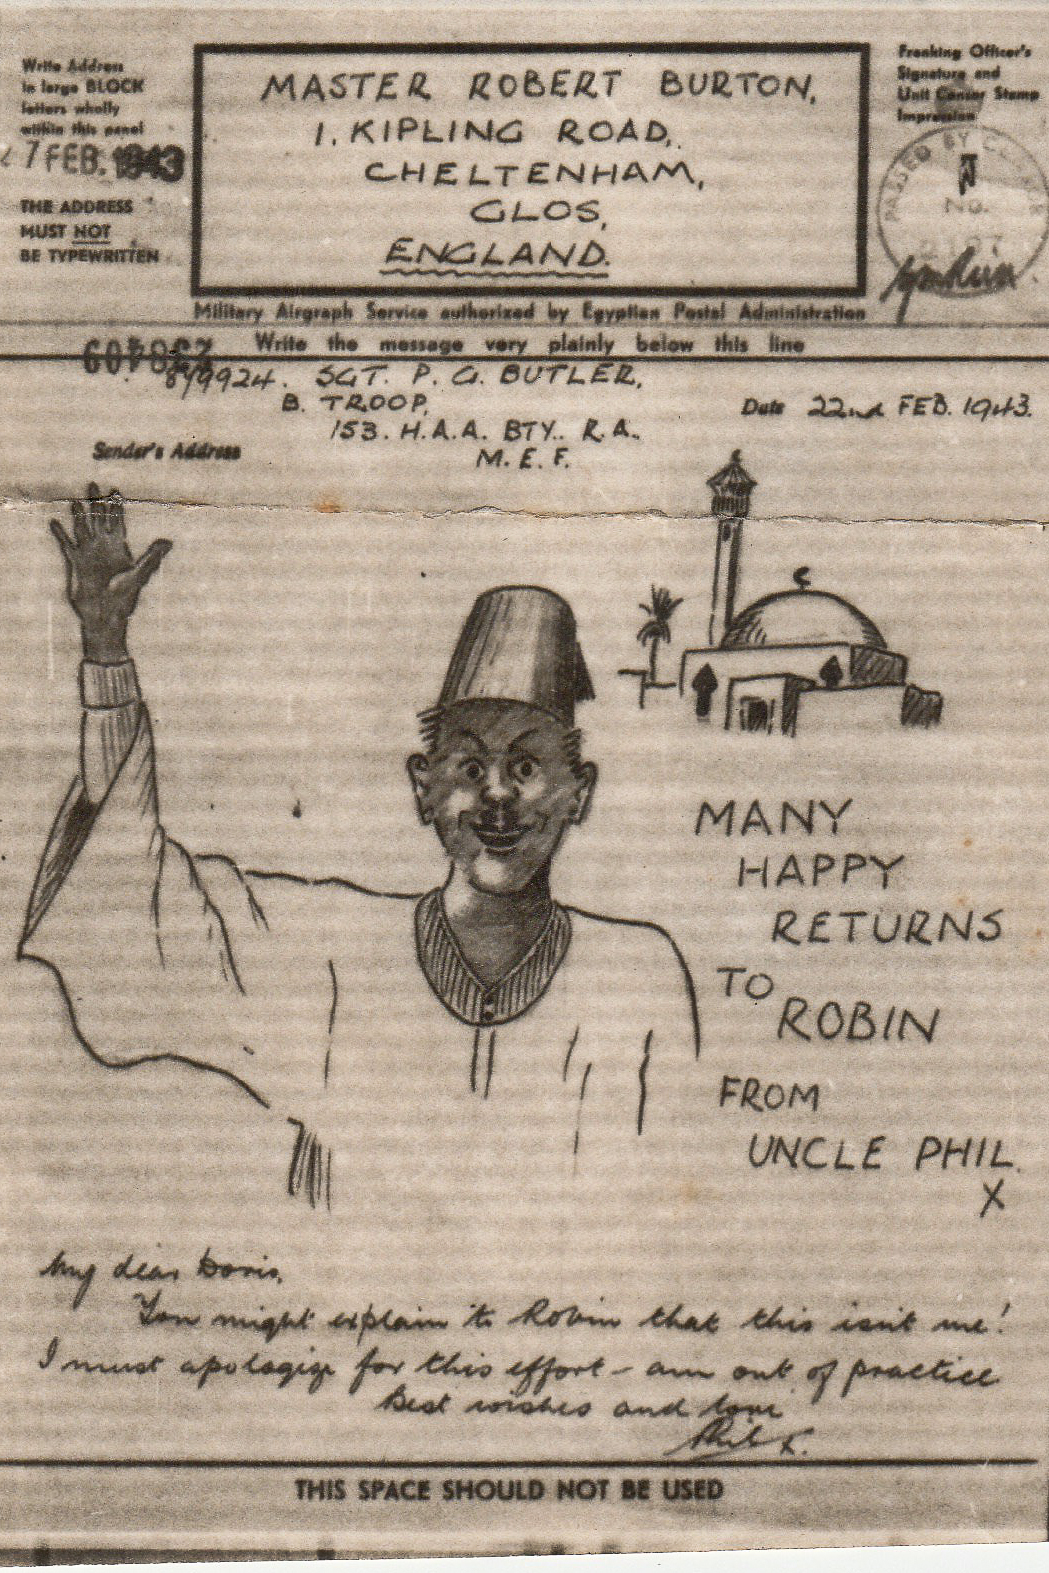 Write Address
in large BLOCK
letters wholly
within this panel
27 FEB. 1943
THE ADDRESS
MUST NOT
BE TYPEWRITTEN
MASTER ROBERT BURTON,
1, KIPLING ROAD,
CHELTENHAM,
GLOS,
ENGLAND.
Franking Officer's
Signature and
Unit Censor Stamp
Impression
PASSED BY CENSOR
No.
Military Airgraph Service authorized by Egyptian Postal Administration
Write the message very plainly below this line
SGT. P. G. BUTLER,
B. TROOP,
153. H.A.A. BTY.. R.A.
M.E.F.
Sender's Address
Date 22nd FEB. 1943.
MANY
HAPPY
RETURNS
TO
ROBIN
FROM
UNCLE PHIL.
X
My dear Doris,
You might explain to Robin that this isnt me!
I must apologize for this effort - am out of practice
Best wishes and love
Phil x.
THIS SPACE SHOULD NOT BE USED